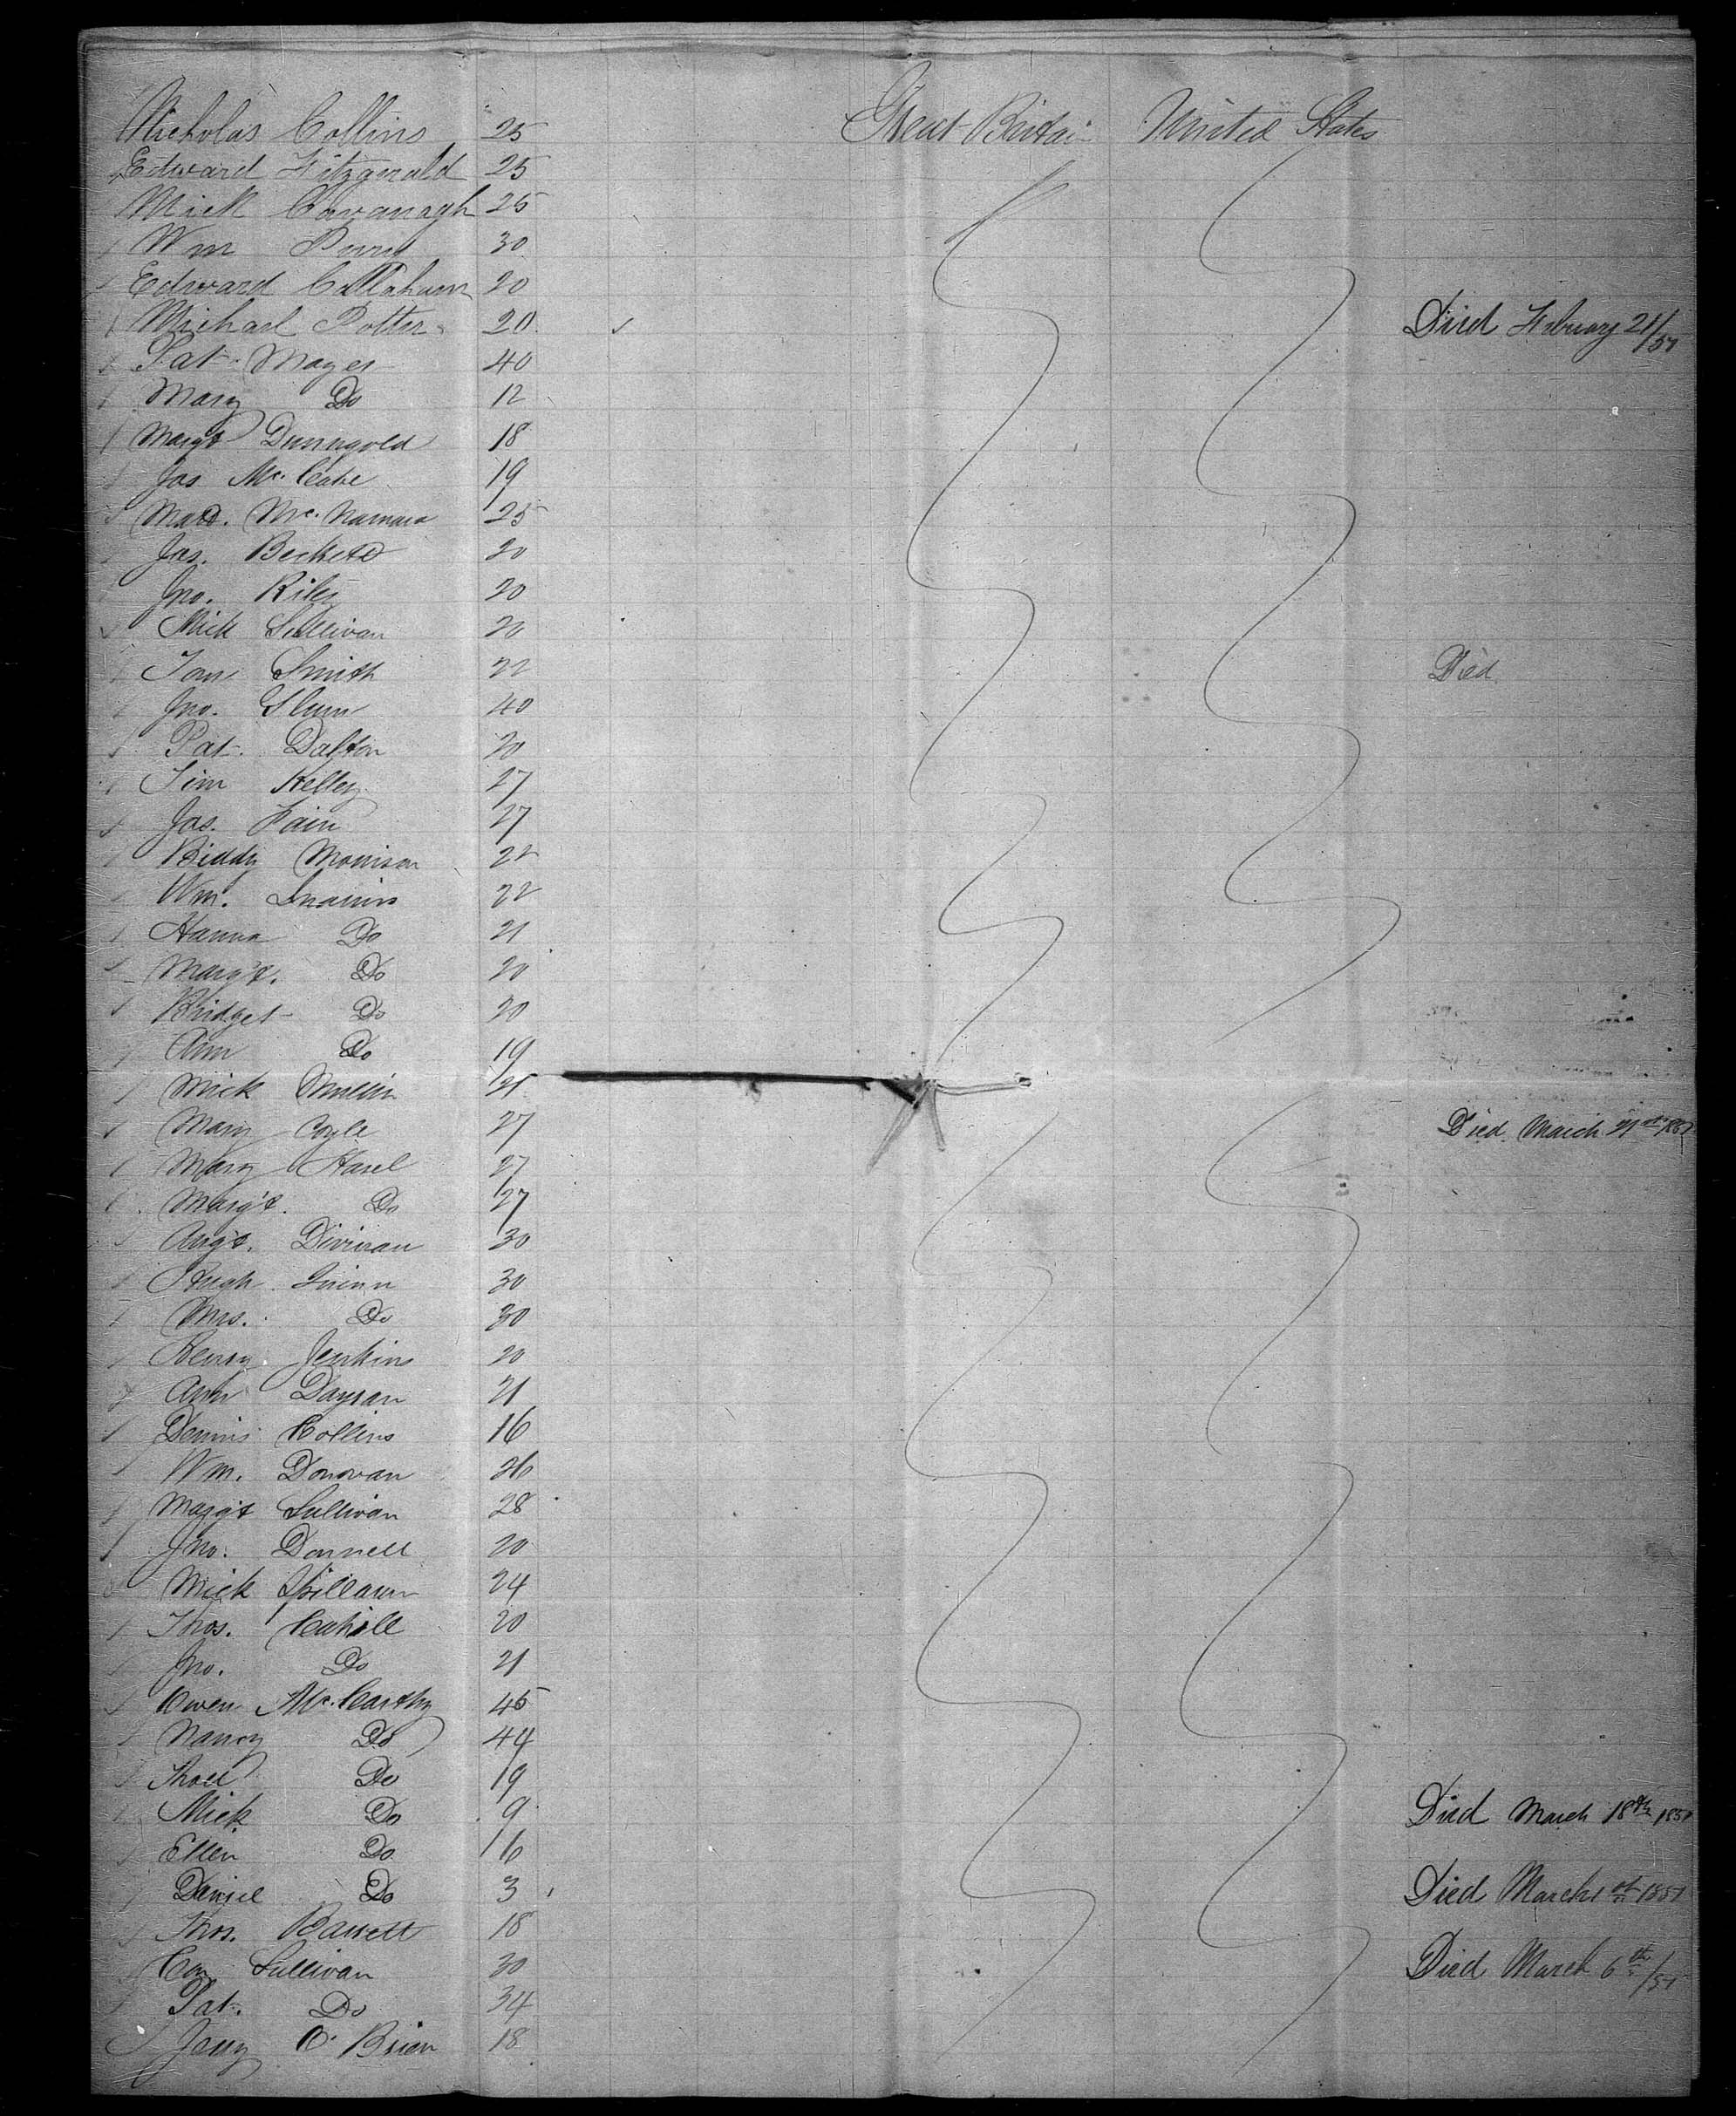 Nicholas Collins 25 Great Britain United States
Edward Fitzgerald 25
Mick Cavanagh 25
Wm 30
Edward Callahann 20
Michael Potter 20 Died February 21/51
Pat Mayer 40
Mary Do 12
Margt Dunngold 18
Jas Mc. Cabe 19
Mc. Namara 25
Jas. Beckett 20
Jno. Riley 20
Mick Sullivan 20
Tom Smith 22 Died
Jno. 40
Pat. Dalton 20
Tim Kelley 27
Jas. Fain 27
Biddy Morrison 22
Wm. 22
Hanna Do 21
Marg't. Do 20
Bridget Do 20
Ann Do 19
Mick Mullin
Mary Coyle 27 Died March 21st 1851
Mary Hasel 27
Marg't. Do 27
Divinan 30
Hugh Quinn 30
Mrs. Do 30
Henry Jenkins 20
Ann Daysan 21
Dennis Collins 16
Wm. Donovan 26
Marg't Sullivan 28
Jno. Donnell 20
Mick Spillann 24
Thos. Cahill 20
Jno. Do 21
Owen Mc. Carthy 45
Nancy Do 44
Do 19
Mick Do 9 Died March 18th 1851
Ellen Do 16
Daniel Do 3 Died March 1st 1851
Thos. Barrett 18
Con Sullivan 30 Died March 6th/51
Pat. Do 34
Jerry O'Brien 18